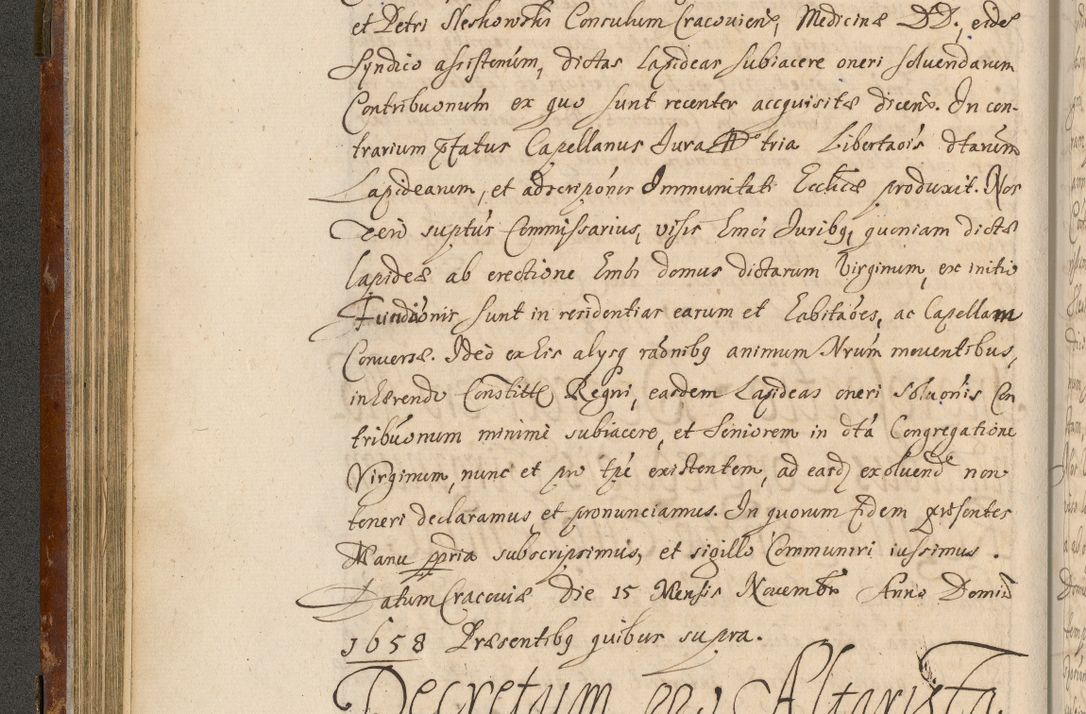 et Petri Sleskowski Consulum Cracovien̄, Medicinæ DD, eidē
Syndico assisten̄tium, dictas Lapideas subiacere oneri soluendarum
Contribuonum̄ ex quo sunt recenter accquisitæ dicens. In con-
trarium p̄fatus Capellanus Jura tria Libertaōis dtarum̄
Lapidearum, et adscripōnis Immunitati Eccl̄icæ produxit. Nos
vero suptus Commissarius, visis Juribq, quoniam dictæ
lapideæ ab erectione domus dictarum Virginum, ex initio
Fundāonis sunt in residentias earum et habitāoes, ac Capellam
Conversæ. Ideo ex his alysq raōnibq animum Nrum̄ mouentibus,
inhærendo Constitt Regni, easdem Lapideas oneri soluonis Con
tribuonum minime subiacere, et Seniorem in dtā Congregatione
Virginum, nunc et pro tp̄e existentem, ad easd exoluend non
teneri declaramus et pronunciamus. In quorum fidem præsentes
Manu ppria subscripsimus, et sigillo Communiri iussimus.
Datum Cracoviæ Die 15 Mensis Novembr Anno Domini
1658 Præsentibq quibus supra.
Decretum Altarista